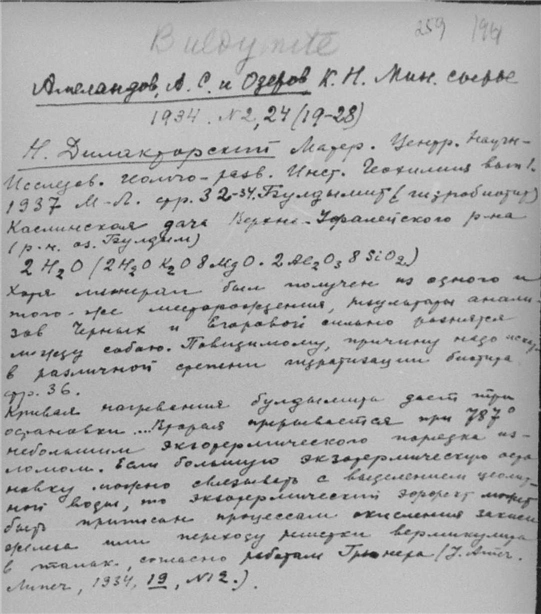 Buldymite 259 194
Амеландов, А. С. и Озеров К. Н. Мин. сырье
1934. №2, 24 (19-28)
Н. Дилакторский Матер. Центр. Научн-
Исслед. Геолго-разв. Инст. Геохимия вып 1.
1937 М-Л. стр. 32-34. Булдымит (гидробиотит)
Каслинская дача Верхне-Уфалейского р-на
(р-н. оз. Булдым)
2H₂O (2H₂O K₂O 8MgO · 2Al₂O₃ 8SiO₂)
Хотя минерал был получен из одного и
того-же месторождения, результаты анали-
зов Черных и Егоровой сильно разнятся
между собою. Повидимому, причину надо
в различной степени гидратизации биотита
стр. 36.
Кривая нагревания булдымита дает три
остановки ... Вторая прерывается при 787°
небольшим экзотермического порядка из-
ломом. Если большую экзотермическую оста
новку можно связывать с выделением цеолит-
ной воды, то экзотермический эффект может
быть приписан процессам окисления закиси
железа или переходу решетки вермикулита
в тальк, согласно работам Грюнера (J. Amer.
1934, 19, №12.)